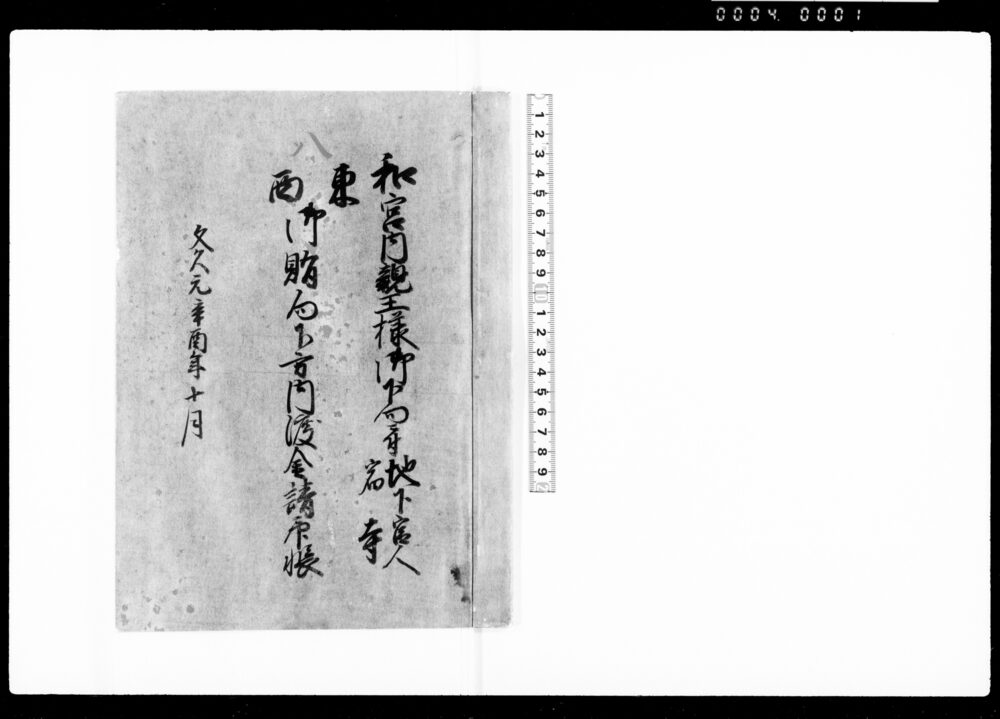 0004 0001
八
和宮内親王様御下向ニ付地下官人
宿寺
東
西
御賄向下方内渡金請印帳
文久元辛酉年十月
1 2 3 4 5 6 7 8 9 10 1 2 3 4 5 6 7 8 9